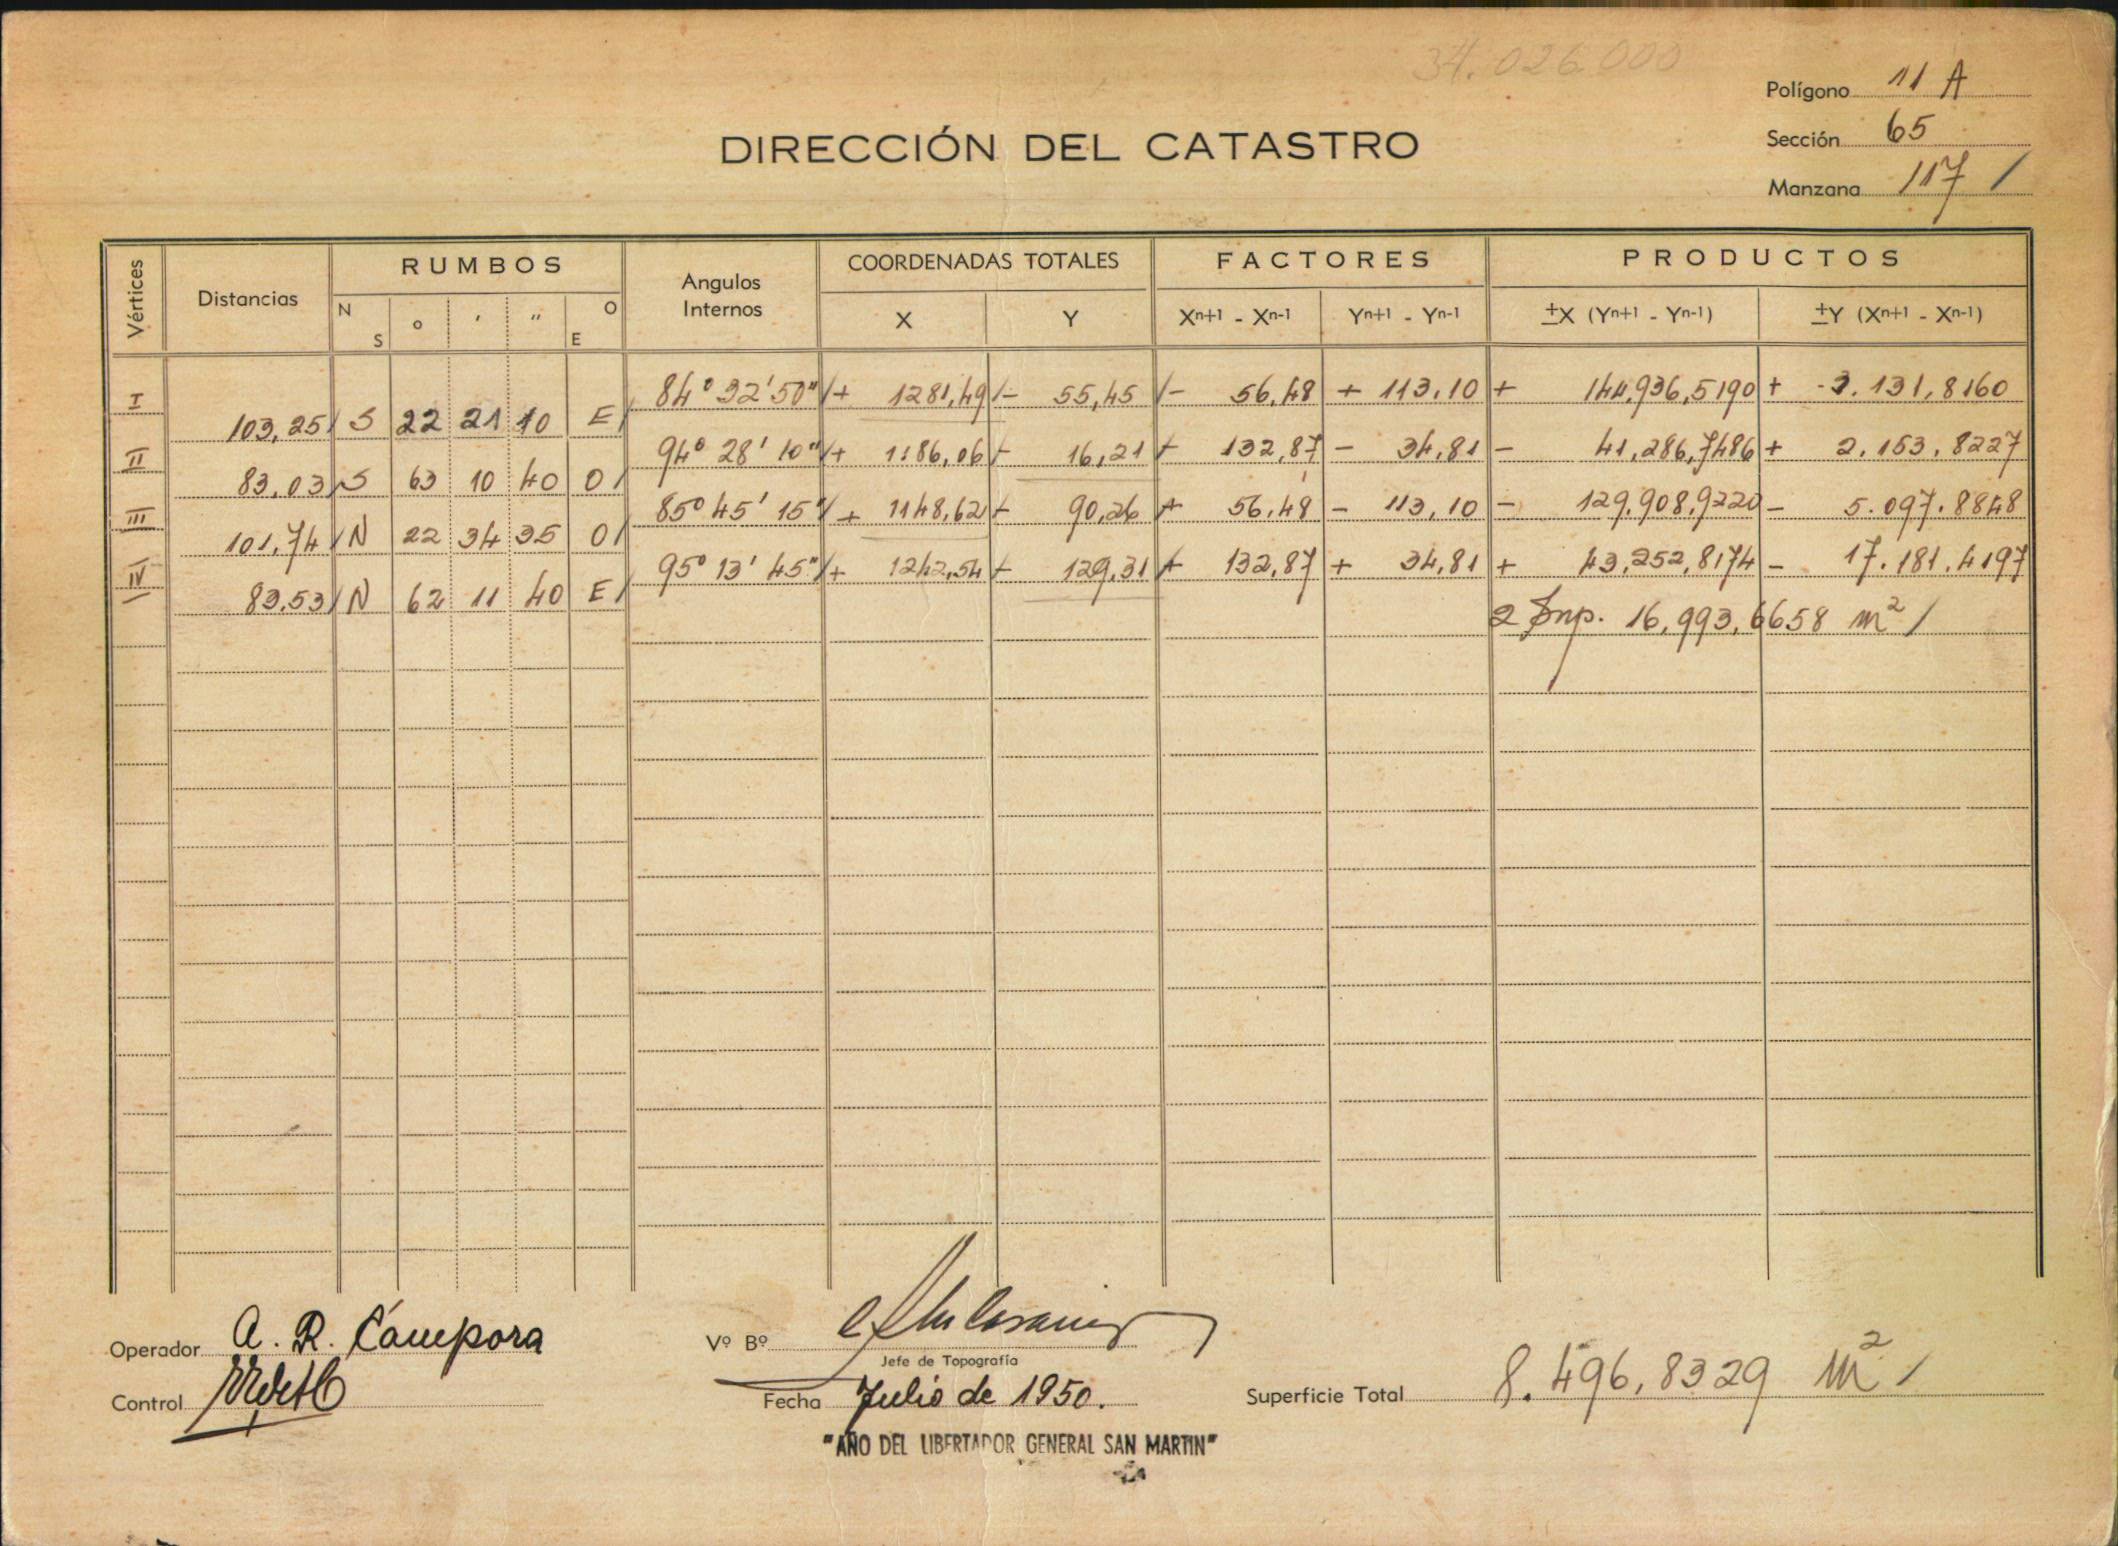 34.026.000
Polígono 11 A
Sección 65
Manzana 117 /
DIRECCIÓN DEL CATASTRO
Vértices Distancias RUMBOS Angulos Internos COORDENADAS TOTALES FACTORES PRODUCTOS
N S o ' " O E X Y Xn+1 - Xn-1 Yn+1 - Yn-1 ±X (Yn+1 - Yn-1) ±Y (Xn+1 - Xn-1)
I 84° 32' 50" /+ 1281,49 /- 55,45 /- 56,48 + 113,10 + 144.936,5190 + 3.131,8160
103,25 / S 22 21 10 E /
II 94° 28' 10" /+ 1186,06 /- 16,21 + 132,87 - 34,81 - 41,286,7486 + 2.153,8227
83,03 / S 63 10 40 O /
III 85° 45' 15" /+ 1148,62 /- 90,26 + 56,48 - 113,10 - 129.908,9220 - 5.097.8848
101,74 / N 22 34 35 O /
IV 95° 13' 45" /+ 1242,54 /- 129,31 + 132,87 + 34,81 + 43,252,8174 - 17.181.4197
83,53 / N 62 11 40 E /
2 Sup. 16,993,6658 m² /
Operador A. R. Cámpora
Vº Bº
Jefe de Topografía
Control
Fecha Julio de 1950.
Superficie Total 8.496,8329 m² /
"AÑO DEL LIBERTADOR GENERAL SAN MARTIN"